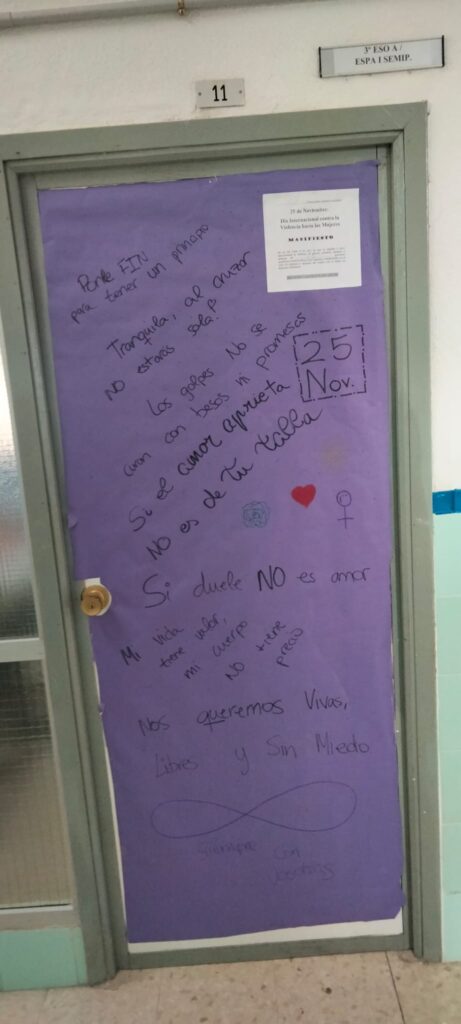 3º ESO A /
ESPA I SEMIP.
11
25 de Noviembre:
Día Internacional contra la
Violencia hacia las Mujeres
MANIFIESTO
Ponle FIN
para tener un principio
Tranquila, al cruzar
NO estarás sola.
Los golpes No se
curan con besos ni promesas
25
Nov.
Si el amor aprieta
NO es de tu talla
Si duele NO es amor
Mi vida
tiene valor,
mi cuerpo
NO tiene
precio
Nos queremos Vivas,
Libres y Sin Miedo
Siempre con
vosotras